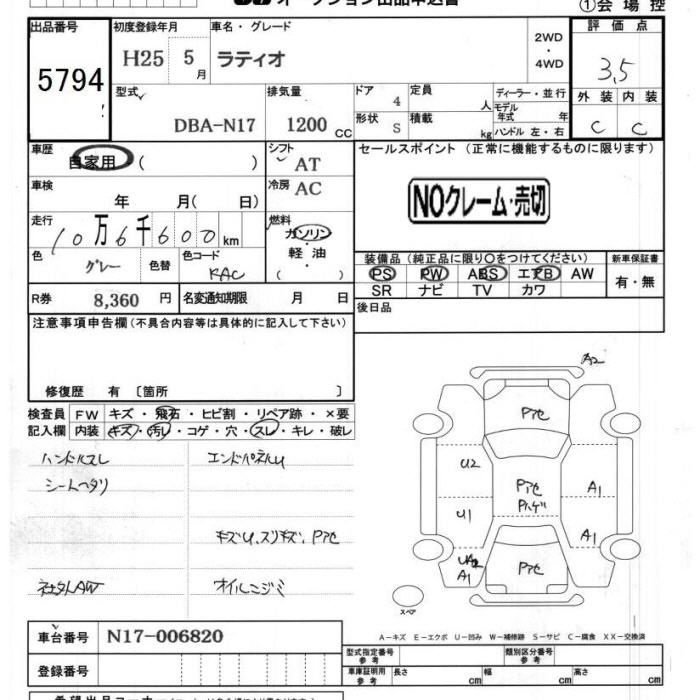 オークション出品申込書
①会場控
出品番号
5794
初度登録年月
H25 5月
車名・グレード
ラティオ
2WD
・
4WD
評価点
3,5
外装 内装
C C
型式
DBA-N17
排気量
1200 CC
ドア
4
形状 S
定員
人
積載
kg
ディーラー・並行
モデル
年式 年
ハンドル 左・右
車歴
自家用 ( )
シフト
AT
車検
年 月( 日)
冷房 AC
走行
10万6千600km
燃料
ガソリン
・
軽・油
( )
色
グレー
色替
色コード
KAC
R券 8,360 円
名変通知期限 月 日
セールスポイント (正常に機能するものに限ります)
NOクレーム・売切
装備品(純正品に限り〇をつけてください)
PS PW ABS エアB AW
SR ナビ TV カワ
新車保証書
有・無
後日品
注意事項申告欄(不具合内容等は具体的に記入して下さい)
修復歴 有 〔箇所 〕
検査員
記入欄
FW キズ・飛石・ヒビ割・リペア跡・×要
内装 キズ・汚レ・コゲ・穴・スレ・キレ・破レ
ハンドルスレ
シートヘタリ
エンドパネルU
キズU,スリキズ,Pアセ
社外AW
オイルニジミ
A2
Pアセ
U2
Pアセ
Pハゲ
A1
U1
A1
A1
Pアセ
スペア
A−キズ E−エクボ U−凹み W−補修跡 S−サビ C−腐食 XX−交換済
車台番号 N17-006820
登録番号
型式指定番号
参考
類別区分番号
参考
車庫証明用
参考
長さ cm
幅 cm
高さ cm